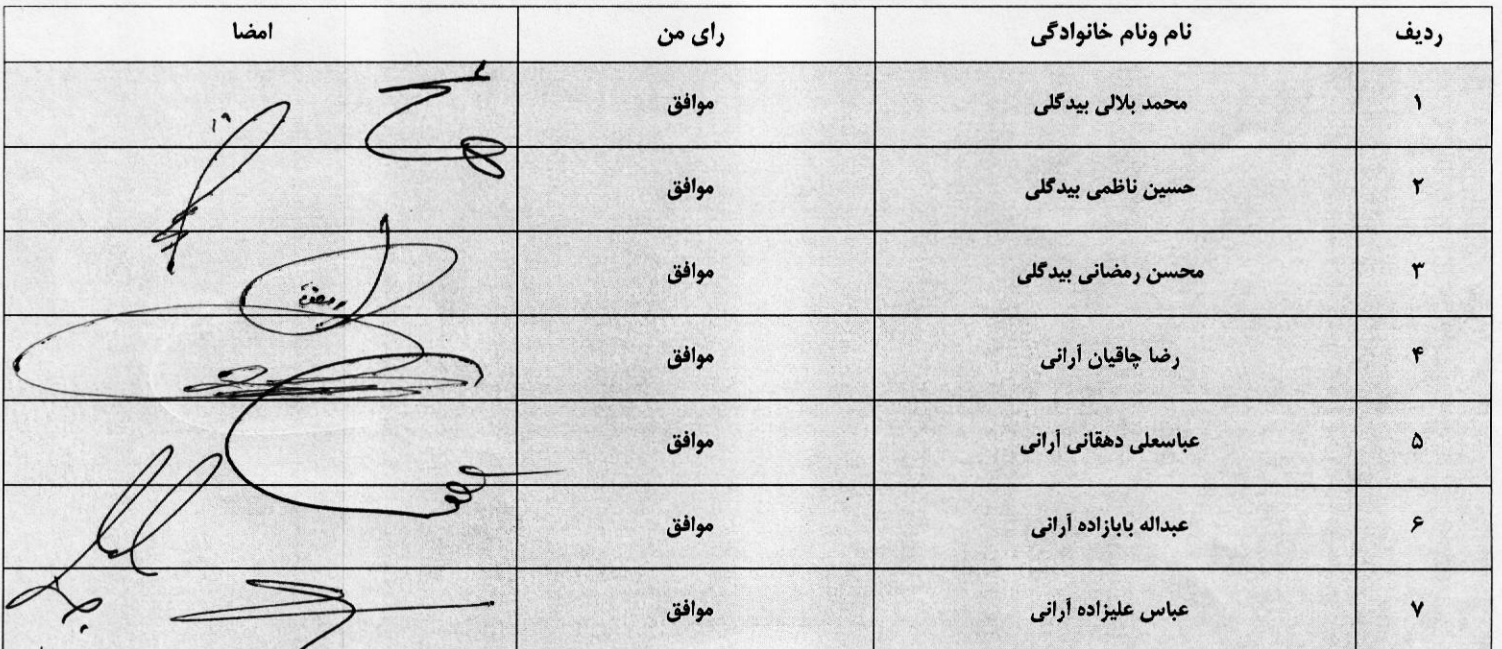 ردیف نام ونام خانوادگی رای من امضا
۱ محمد بلالی بیدگلی موافق
۲ حسین ناظمی بیدگلی موافق
۳ محسن رمضانی بیدگلی موافق
۴ رضا چاقیان آرانی موافق
۵ عباسعلی دهقانی آرانی موافق
۶ عبداله بابازاده آرانی موافق
۷ عباس علیزاده آرانی موافق